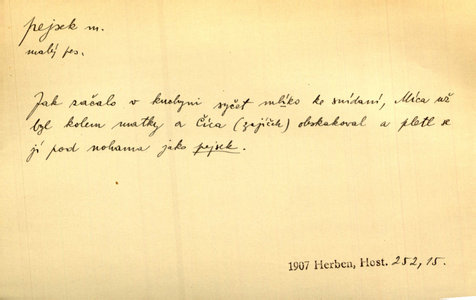 pejsek m.
malý pes.
Jak začalo v kuchyni syčet mlíko ke snídani, Míca už
byl kolem matky a Číča (zajíček) obskakoval a pletl se
jí pod nohama jako pejsek.
1907 Herben, Host. 252, 15.